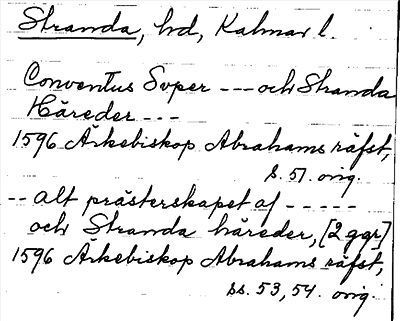 Stranda, hd, Kalmar l.
Conventus Super --- och Stranda
Häreder ---
1596 Ärkebiskop Abrahams räfst,
s. 51. orig.
-- alt prästerskapet af -----
och Stranda häreder, [2 ggr]
1596 Ärkebiskop Abrahams räfst,
ss. 53, 54. orig.